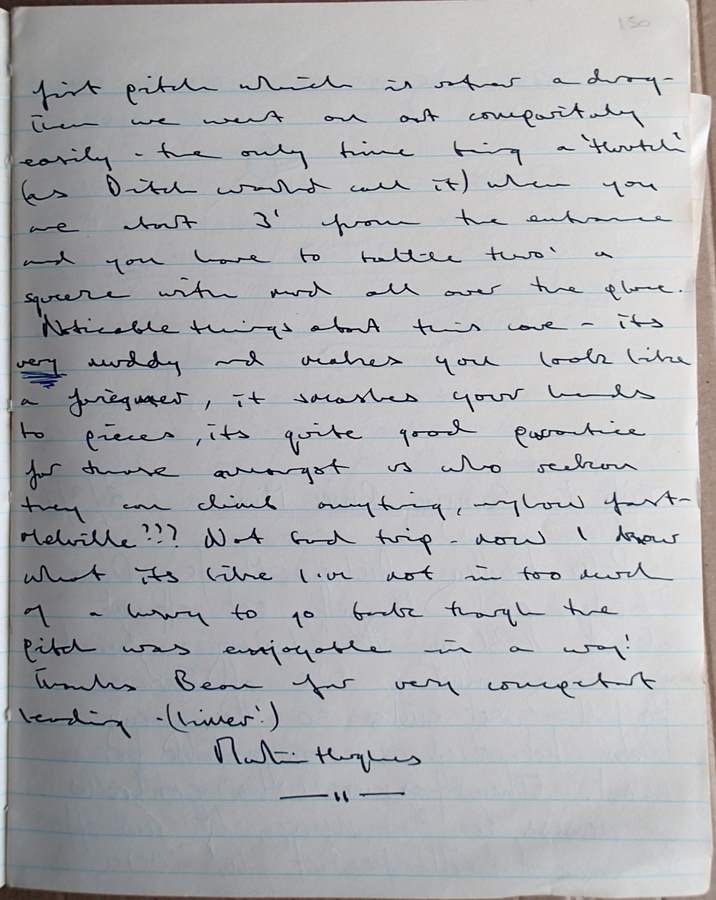 150
first pitch which is rather a drag -
Then we went on out comparitaly
easily - the only time being a 'thrutch'
(as Ditch would call it) when you
are about 3' from the entrance
and you have to battle thro' a
squeeze with mud all over the place.
Noticable things about this cave - its
very muddy and makes you look like
a , it smashes your hands
to pieces, its quite good practice
for those amongst us who reckon
they can climb anything, nylow fast-
Melville??? Not bad trip - now I know
what its like I'm not in too much
of a hurry to go back though the
pitch was enjoyable in a way!
Thanks Bean for very competant
leading - (liner!)
Martin Hughes
— " —